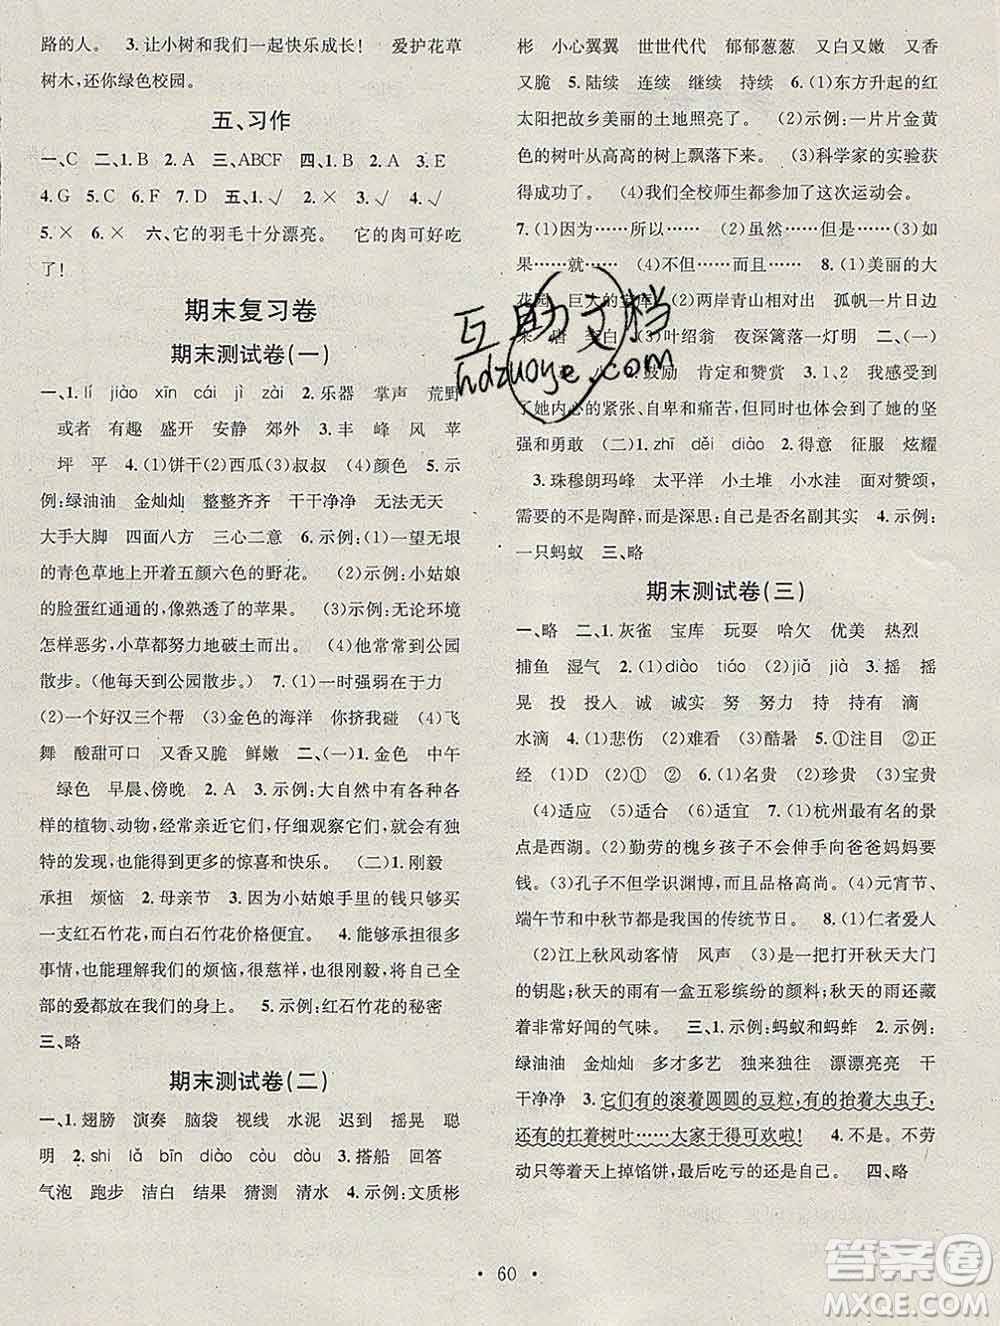 路的人。 3. 让小树和我们一起快乐成长! 爱护花草
树木,还你绿色校园。
五、习作
一、C 二、1. B 2. A 三、ABCF 四、1. B 2. A 3. E
4. G 5. C 6. D 7. F 五、1. √ 2. × 3. √ 4. √
5. × 6. × 六、它的羽毛十分漂亮。 它的肉可好吃
了!
期末复习卷
期末测试卷(一)
一、1. lí jiào xīn cái jì zài 2. 乐器 掌声 荒野
或者 有趣 盛开 安静 郊外 3. 丰 峰 风 苹
坪 平 4. (1)饼干(2)西瓜(3)叔叔(4)颜色 5. 示
例:绿油油 金灿灿 整整齐齐 干干净净 无法无天
大手大脚 四面八方 三心二意 6. 示例:(1)一望无垠
的青色草地上开着五颜六色的野花。 (2)示例:小姑娘
的脸蛋红通通的,像熟透了的苹果。 (3)示例:无论环境
怎样恶劣,小草都努力地破土而出。 (4)他常常到公园
散步。(他每天到公园散步。) 7. (1)一时强弱在于力
(2)一个好汉三个帮 (3)金色的海洋 你挤我碰 (4)飞
舞 酸甜可口 又香又脆 鲜嫩 二、(一)1. 金色 中午
绿色 早晨、傍晚 2. A 3. 示例:大自然中有各种各样
的植物、动物,经常亲近它们,仔细观察它们,就会有独
特的发现,也能获得更多的惊喜和快乐。 (二)1. 刚毅
承担 烦恼 2. 母亲节 3. 因为小姑娘手里的钱只够买
一支红石竹花,而白石竹花价格便宜。 4. 能承担起很多
事情,也能理解我们的烦恼,很慈祥,也很刚毅,把自己全
部的爱都放在我们的身上。 5. 示例:红石竹花的秘密
三、略
期末测试卷(二)
一、1. 翅膀 演奏 脑袋 视线 水泥 迟到 摇晃 聪
明 2. shi lǎ bīn diào còu dòu 3. 搭船 回答
气泡 跑步 洁白 结果 猜测 清水 4. 示例:文质彬
彬 小心翼翼 世世代代 郁郁葱葱 又白又嫩 又香
又脆 5. 陆续 连续 继续 持续 6. (1)东方升起的红
太阳把故乡美丽的土地照亮了。 (2)示例:一片片金黄
色的树叶从高高的树上飘落下来。 (3)科学家的实验获
得成功了。 (4)我们全校师生都参加了这次运动会。
7. (1)因为……所以…… (2)虽然……但是……(3)如
果……就…… (4)不但……而且…… 8. (1)美丽的大
花园 巨大的宝库 (2)两岸青山相对出 孤帆一片日边
来 唐 李白 (3)叶绍翁 夜深篱落一灯明 二、(一)
鼓励 肯定和赞赏 3. 1、2 我感受到
了她内心的紧张、自卑和痛苦,但同时也体会到了她的坚
强和勇敢 (二)1. zhī děi diào 2. 得意 征服 炫耀
3. 珠穆朗玛峰 太平洋 小土堆 小水洼 面对赞颂,
需要的不是陶醉,而是深思:自己是否名副其实 4. 示例:
一只蚂蚁 三、略
期末测试卷(三)
一、略 二、1. 灰雀 宝库 玩耍 哈欠 优美 热烈
捕鱼 湿气 2. (1)diào tiáo (2)jiǎ jià 3. 摇 摇
晃 投 投入 诚 诚实 努 努力 持 持有 滴
水滴 4. (1)悲伤 (2)难看 (3)酷暑 5. ①注目 ②正
经 (1)D (2)① ② 6. (1)名贵 (2)珍贵 (3)宝贵
(4)适应 (5)适合 (6)适宜 7. (1)杭州最有名的景
点是西湖。(2)勤劳的槐乡孩子不会伸手向爸爸妈妈要
钱。(3)孔子不但学识渊博,而且品格高尚。(4)元宵节、
端午节和中秋节都是我国的传统节日。 8. (1)仁者爱人
(2)江上秋风动客情 风声 (3)是一把打开秋天大门
的钥匙;秋天的雨有一盒五彩缤纷的颜料;秋天的雨还藏
着非常好闻的气味。 三、1. 示例:蚂蚁和蚂蚱 2. 示例:
绿油油 金灿灿 多才多艺 独来独往 漂漂亮亮 干
干净净 3. 它们有的滚着圆圆的豆粒,有的抬着大虫子,
还有的扛着树叶……大家干得可欢啦! 4. 不是。不劳
动只等着天上掉馅饼,最后吃亏的还是自己。 四、略
· 60 ·
互助文档
hdzuoye.com
答案卷
MXQE.COM